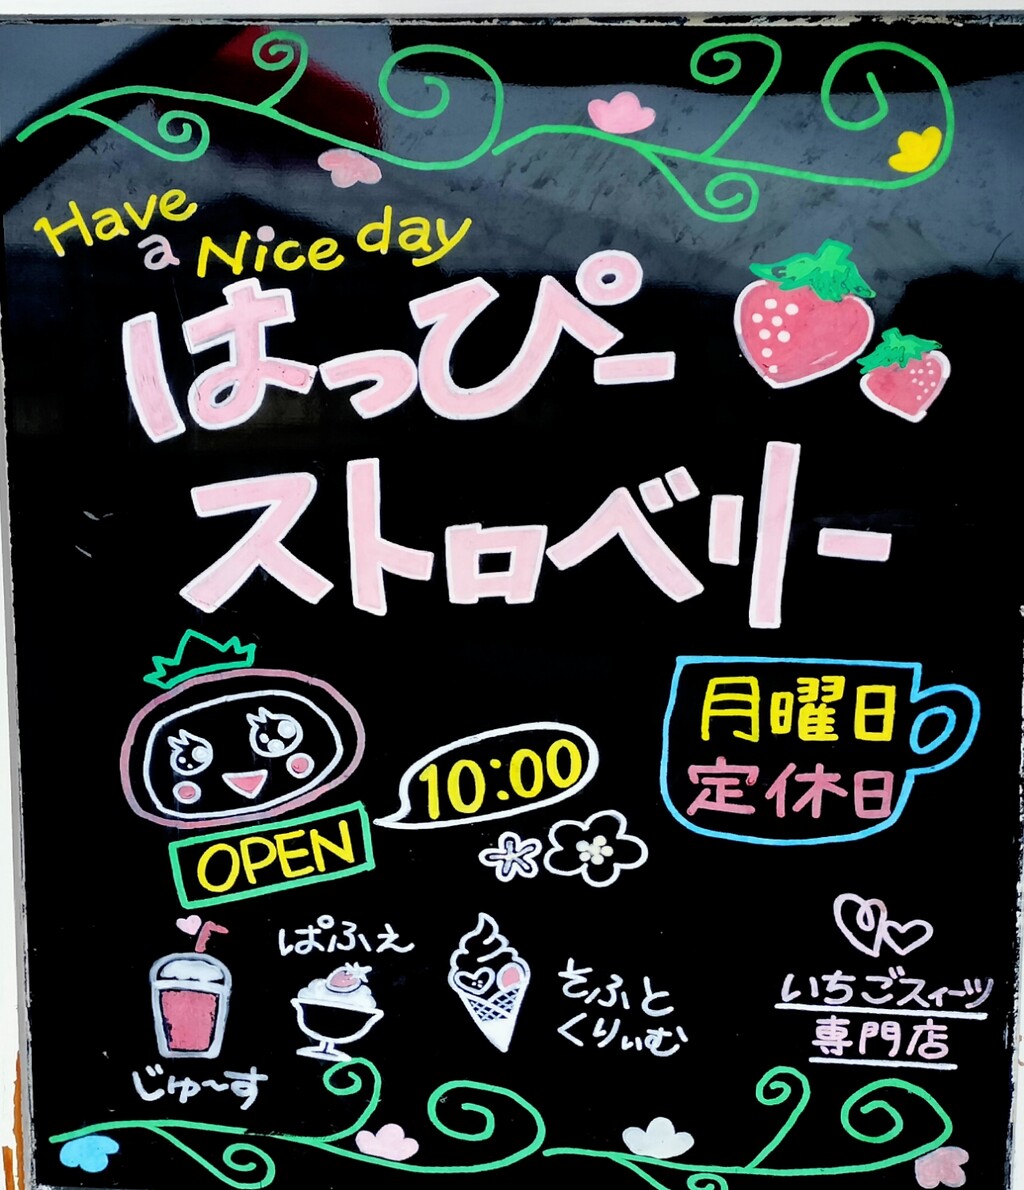 Have a Nice day
はっぴー
ストロベリー
月曜日
定休日
10:00
OPEN
ぱふぇ
そふと
くりぃむ
じゅ〜す
いちごスィーツ
専門店